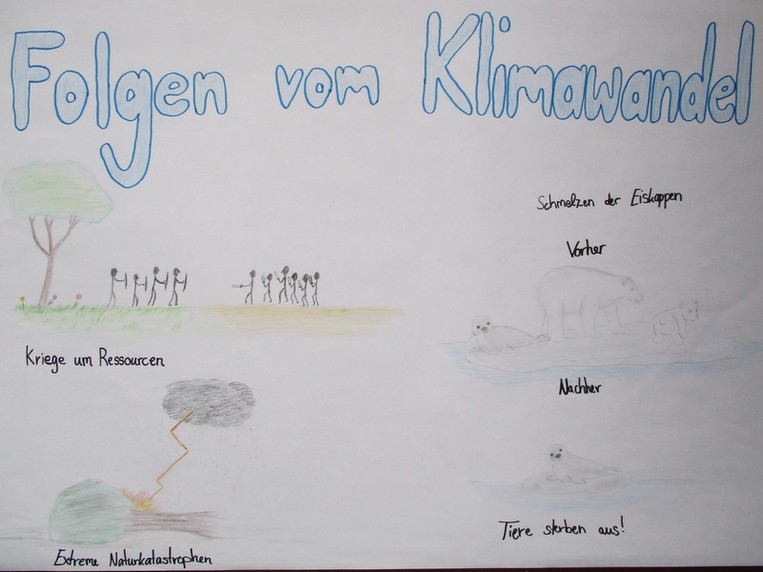 Folgen vom Klimawandel
Kriege um Ressourcen
Extreme Naturkatastrophen
Schmelzen der Eiskappen
Vorher
Nachher
Tiere sterben aus!